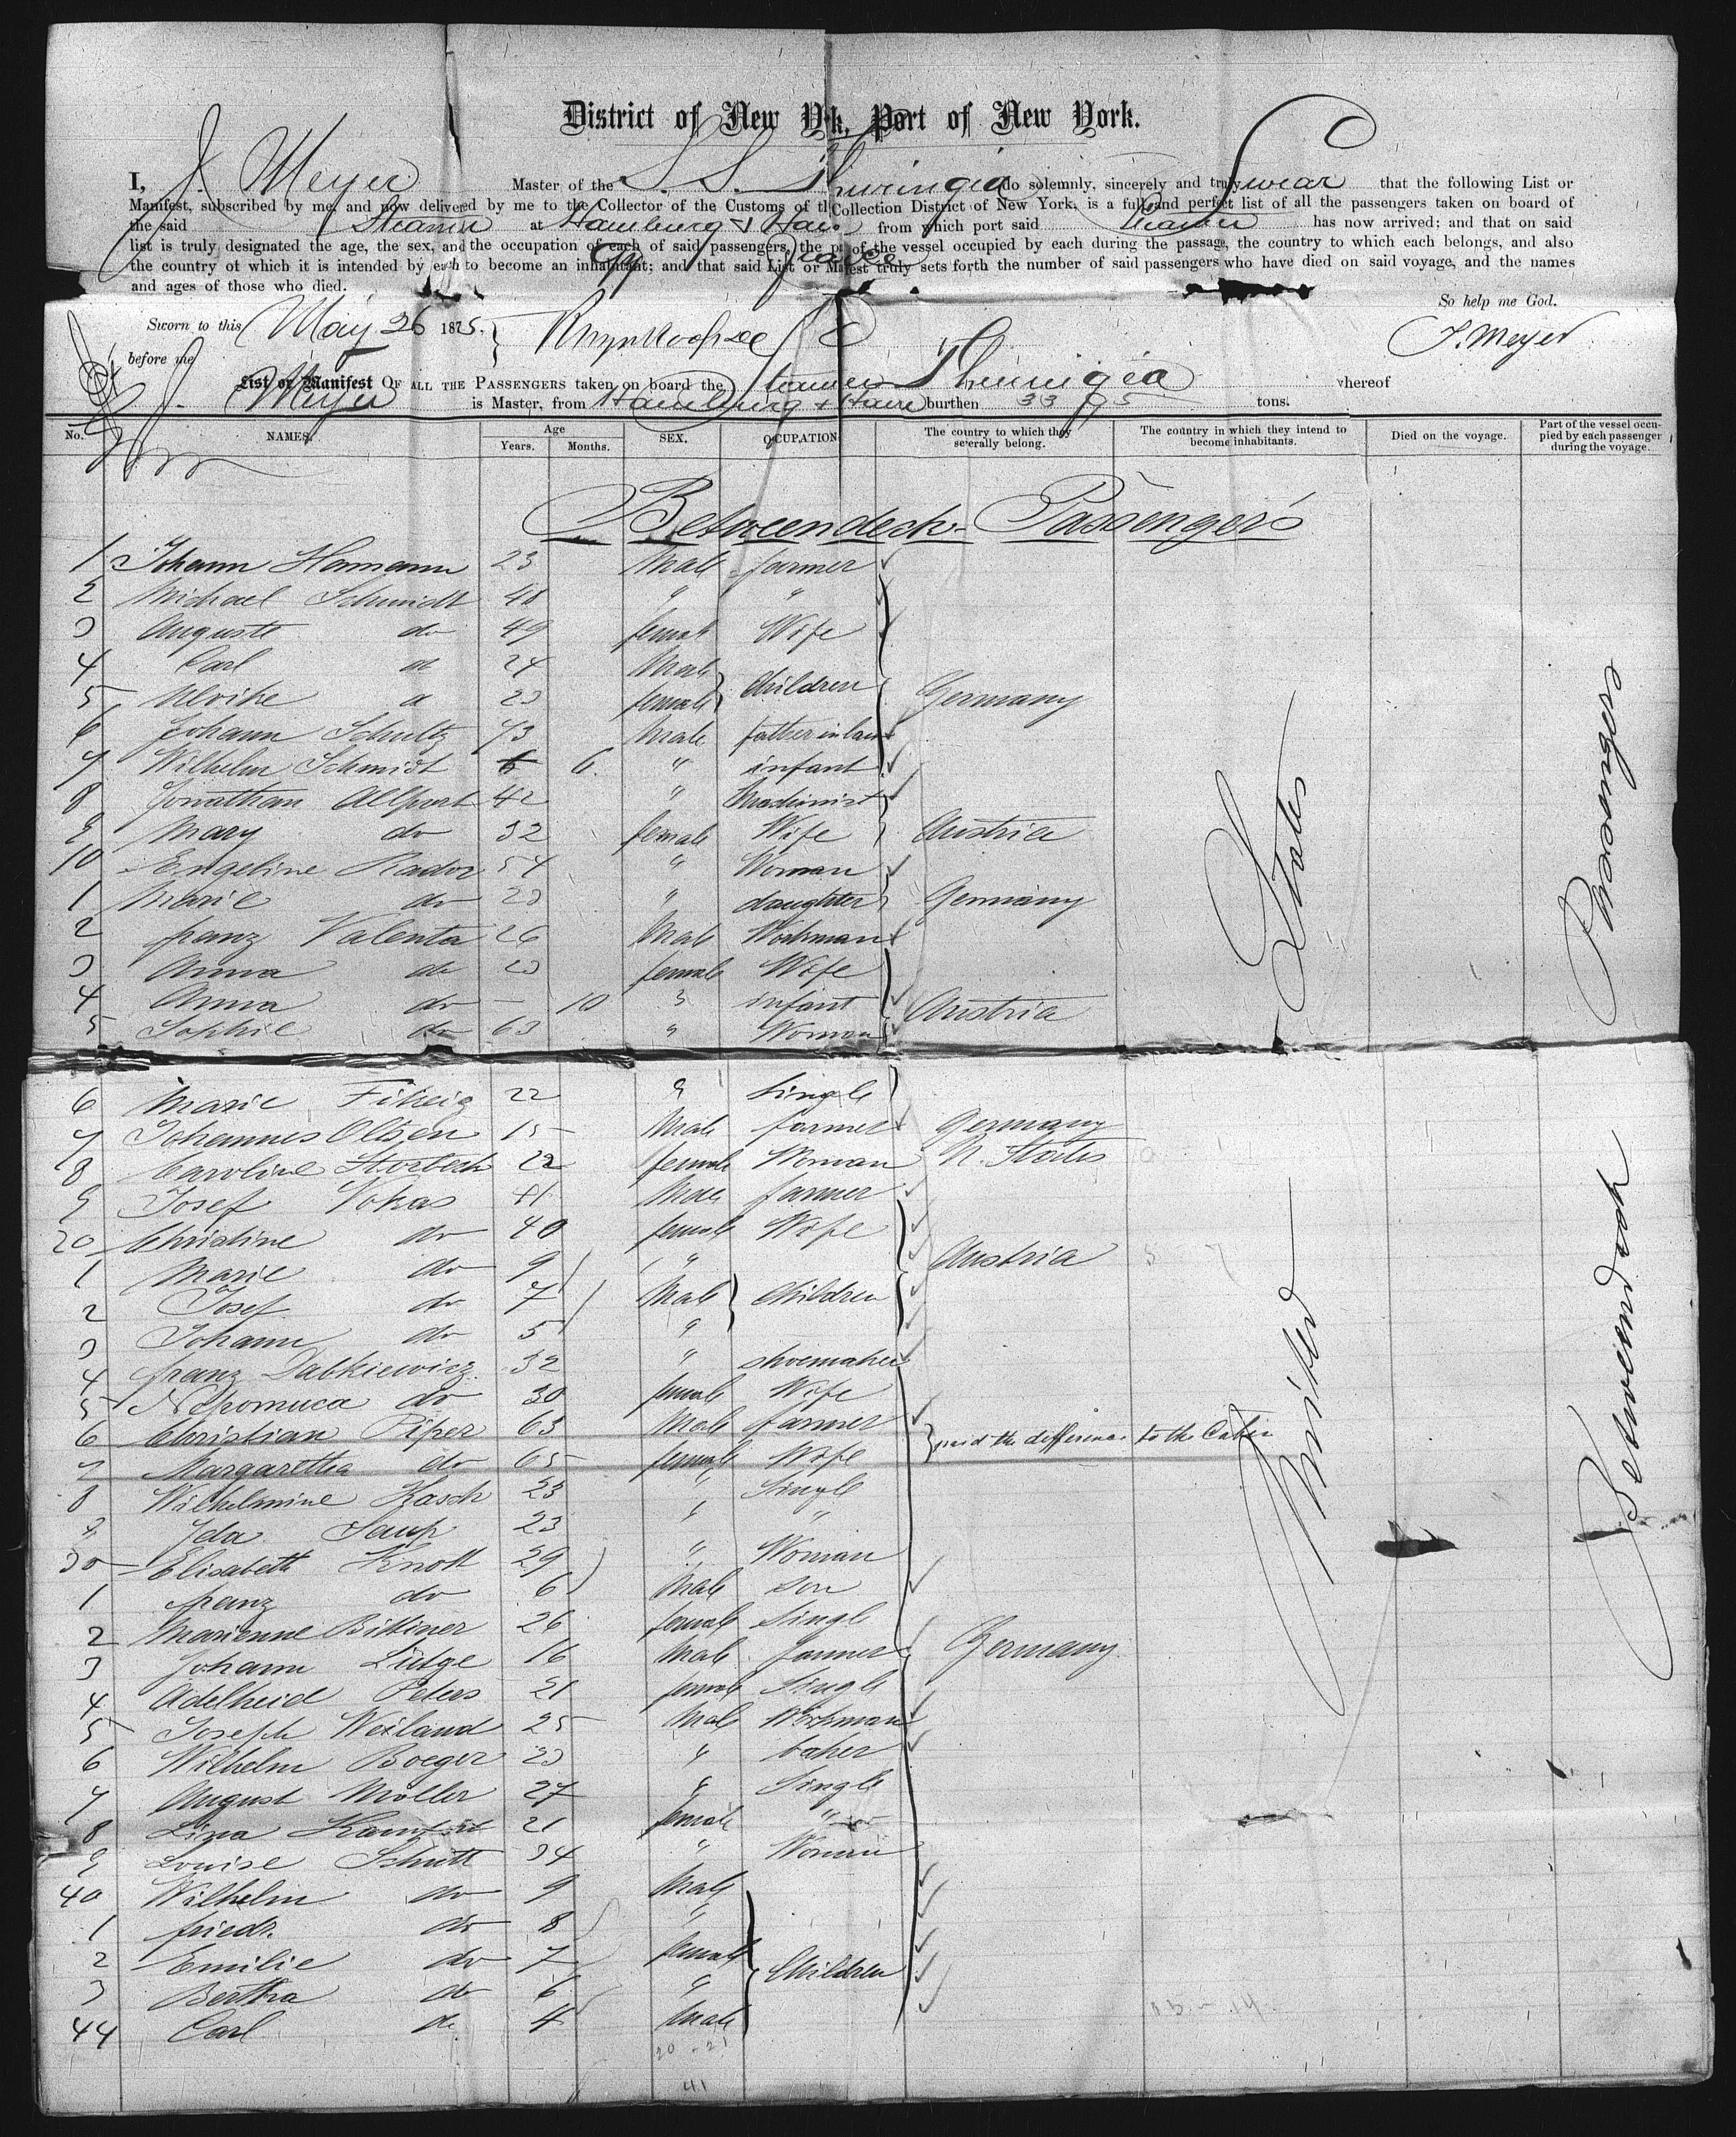 District of New York, Port of New York.
I, J. Meyer Master of the S. S. Thuringia do solemnly, sincerely and truly swear that the following List or
Manifest, subscribed by me, and now delivered by me to the Collector of the Customs of the Collection District of New York, is a full and perfect list of all the passengers taken on board of
the said Steamer at Hamburg & Havre from which port said Steamer has now arrived; and that on said
list is truly designated the age, the sex, and the occupation of each of said passengers, the part of the vessel occupied by each during the passage, the country to which each belongs, and also
the country of which it is intended by each to become an inhabitant; and that said List or Manifest truly sets forth the number of said passengers who have died on said voyage, and the names
and ages of those who died.
So help me God.
Sworn to this May 26 1875. J. Meyer
before me
List or Manifest OF ALL THE PASSENGERS taken on board the Steamer Thuringia whereof
J. Meyer is Master, from Hamburg & Havre burthen tons.
No. NAMES. Age Years. Months. SEX. OCCUPATION The country to which they severally belong. The country in which they intend to become inhabitants. Died on the voyage. Part of the vessel occupied by each passenger during the voyage.
Betweendeck Passengers
1 Johann Hamann 23 Male farmer
2 Michael Schmidt 48 " "
3 Auguste do 49 female Wife
4 Carl do 24 Male
5 Ulrike do 23 female Children Germany
6 Johann Schultz 73 Male father in law
7 Wilhelm Schmidt 6 " infant
8 Jonathan Allport 42 " Machinist
9 Mary do 32 female Wife Austria
10 Engeline Rador 54 " Woman
1 Marie do 23 " daughter Germany
2 franz Valenta 26 Male Workman
3 Anna do 23 female Wife
4 Anna do - 10 " infant Austria
5 Sophie do 63 " Woman
6 Marie 22 " Single
7 Johannes Olsen 15 Male farmer Germany
8 Caroline Storbeck 22 female Woman U. States
9 Josef Vokas 41 Male farmer
20 Christine do 40 female Wife
1 Marie do 9 " Austria
2 Josef do 7 Male Children
3 Johann do 5 "
4 franz Dabkiewicz 32 " shoemaker
5 Nepomuca do 30 female Wife
6 Christian Piper 63 Male farmer paid the difference to the Cabin
7 Margaretha do 65 female Wife
8 Wilhelmine Kasch 23 " Single
9 Ida 23 " "
30 Elisabeth Knott 29 " Woman
1 franz do 6 Male son
2 Marienne Bittiner 26 female Single
3 Johann Lütge 16 Male farmer Germany
4 Adelheid Peters 21 female Single
5 Joseph Weiland 25 Male Workman
6 Wilhelm Boeger 23 " baker
7 August Möller 27 " Single
8 Lina 21 female "
9 Louise Schutt 34 " Woman
40 Wilhelm do 9 Male
1 friedr. do 8 "
2 Emilie do 7 female
3 Bertha do 6 " Children
44 Carl do 4 Male
20 - 21
41
United States
Betweendeck Passengers